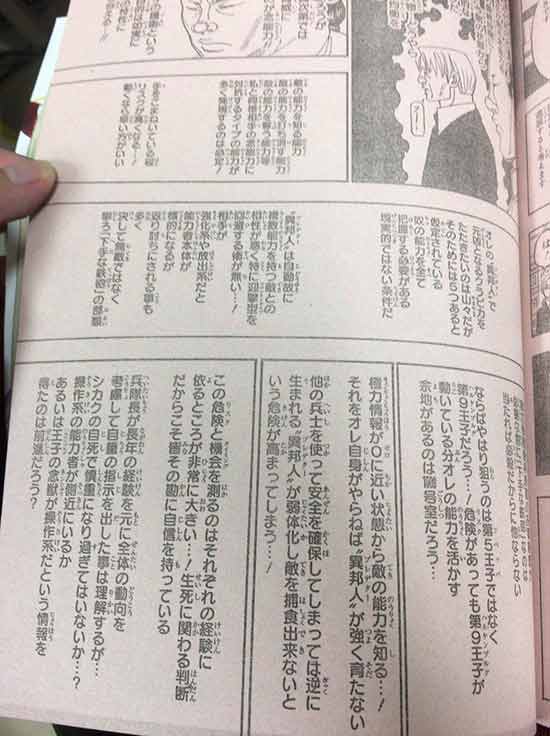 敵の能力を知る能力
敵の能力を消す能力
敵の能力を奪う能力等
私と同様相手の念能力に
対抗するタイプの能力が
多く発現するのは必定!
手をこまねいている程
リスクが高くなる…!
動くなら早い方がいい
オレの“異邦人”で
元凶となるクラピカを
たたきたいのは山々だが
そのためには5つあると
仮定されている
奴の能力を全て
把握する必要がある
現実的ではない条件だ
“異邦人”は自動故に
複数能力を持つ敵との
相性が悪く特に迎撃型を
回避する術が無い…!
相手が
強化系や放出系だと
能力者本体が
標的になるが
返り討ちにされる事も
多く
決して無敵ではなく
寧ろ「下手な鉄砲」の部類
当たれば必殺だからに他ならない
ならばやはり狙うのは第5王子ではなく
第9王子だろう…!危険があっても第9王子が
動いている分オレの能力を活かす
余地があるのは1009号室だろう…
極力情報が0に近い状態から敵の能力を知る…!
それをオレ自身がやらねば“異邦人”が強く育たない
他の兵士を使って安全を確保してしまっては逆に
生まれる“異邦人”が弱体化し敵を捕食出来ないと
いう危険が高まってしまう…!
この危険と機会を測るのはそれぞれの経験に
依るところが非常に大きい…!生死に関わる判断
だからこそ皆その勘に自信を持っている
兵隊長が長年の経験を元に全体の動向を
考慮して自重の指示を出した事は理解するが…
シカクの自死で慎重になり過ぎてはいないか…?
操作系の能力者が側近にいるか
あるいは王子の念獣が操作系だという情報を
得たのは前進だろう?